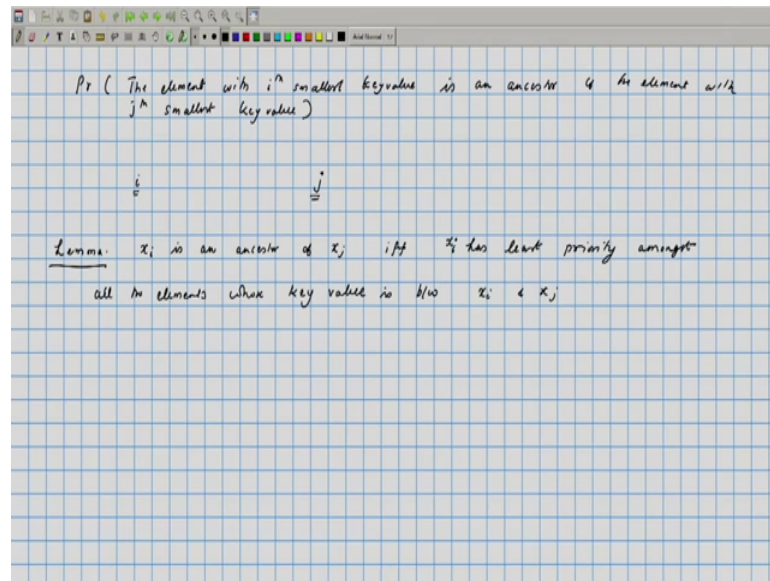 Pr ( The element with i^th smallest key value is an ancestor of the element with
j^th smallest key value )
i j
Lemma. x_i is an ancestor of x_j iff x_i has least priority amongst
all the elements whose key value is b/w x_i & x_j